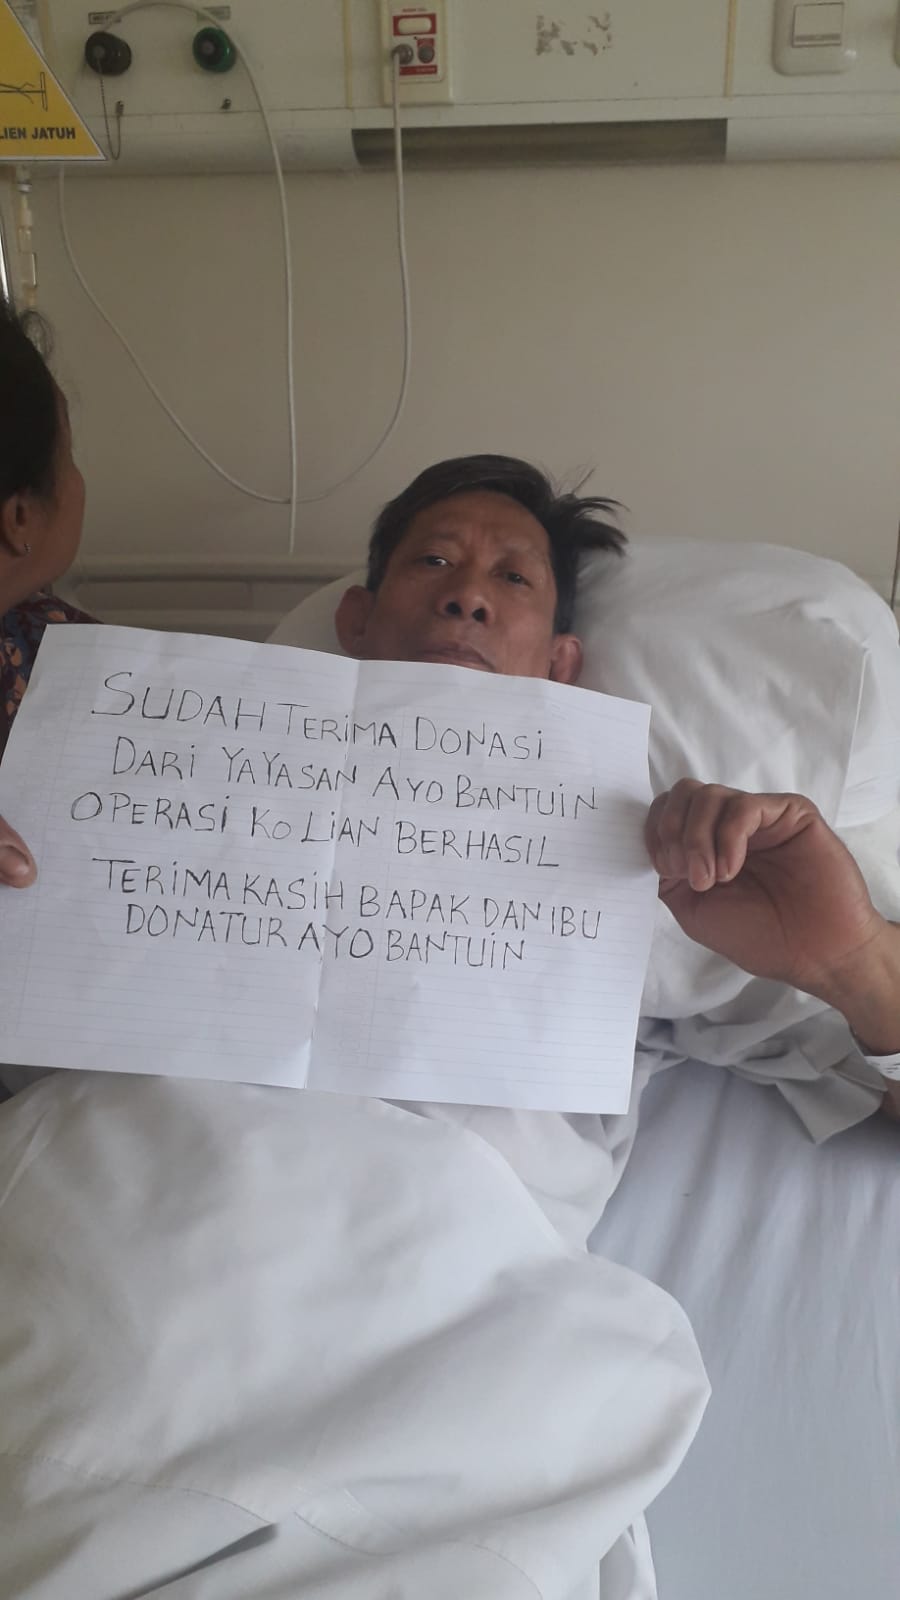 LIEN JATUH
SUDAH TERIMA DONASI
DARI YAYASAN AYO BANTUIN
OPERASI KO LIAN BERHASIL
TERIMA KASIH BAPAK DAN IBU
DONATUR AYO BANTUIN